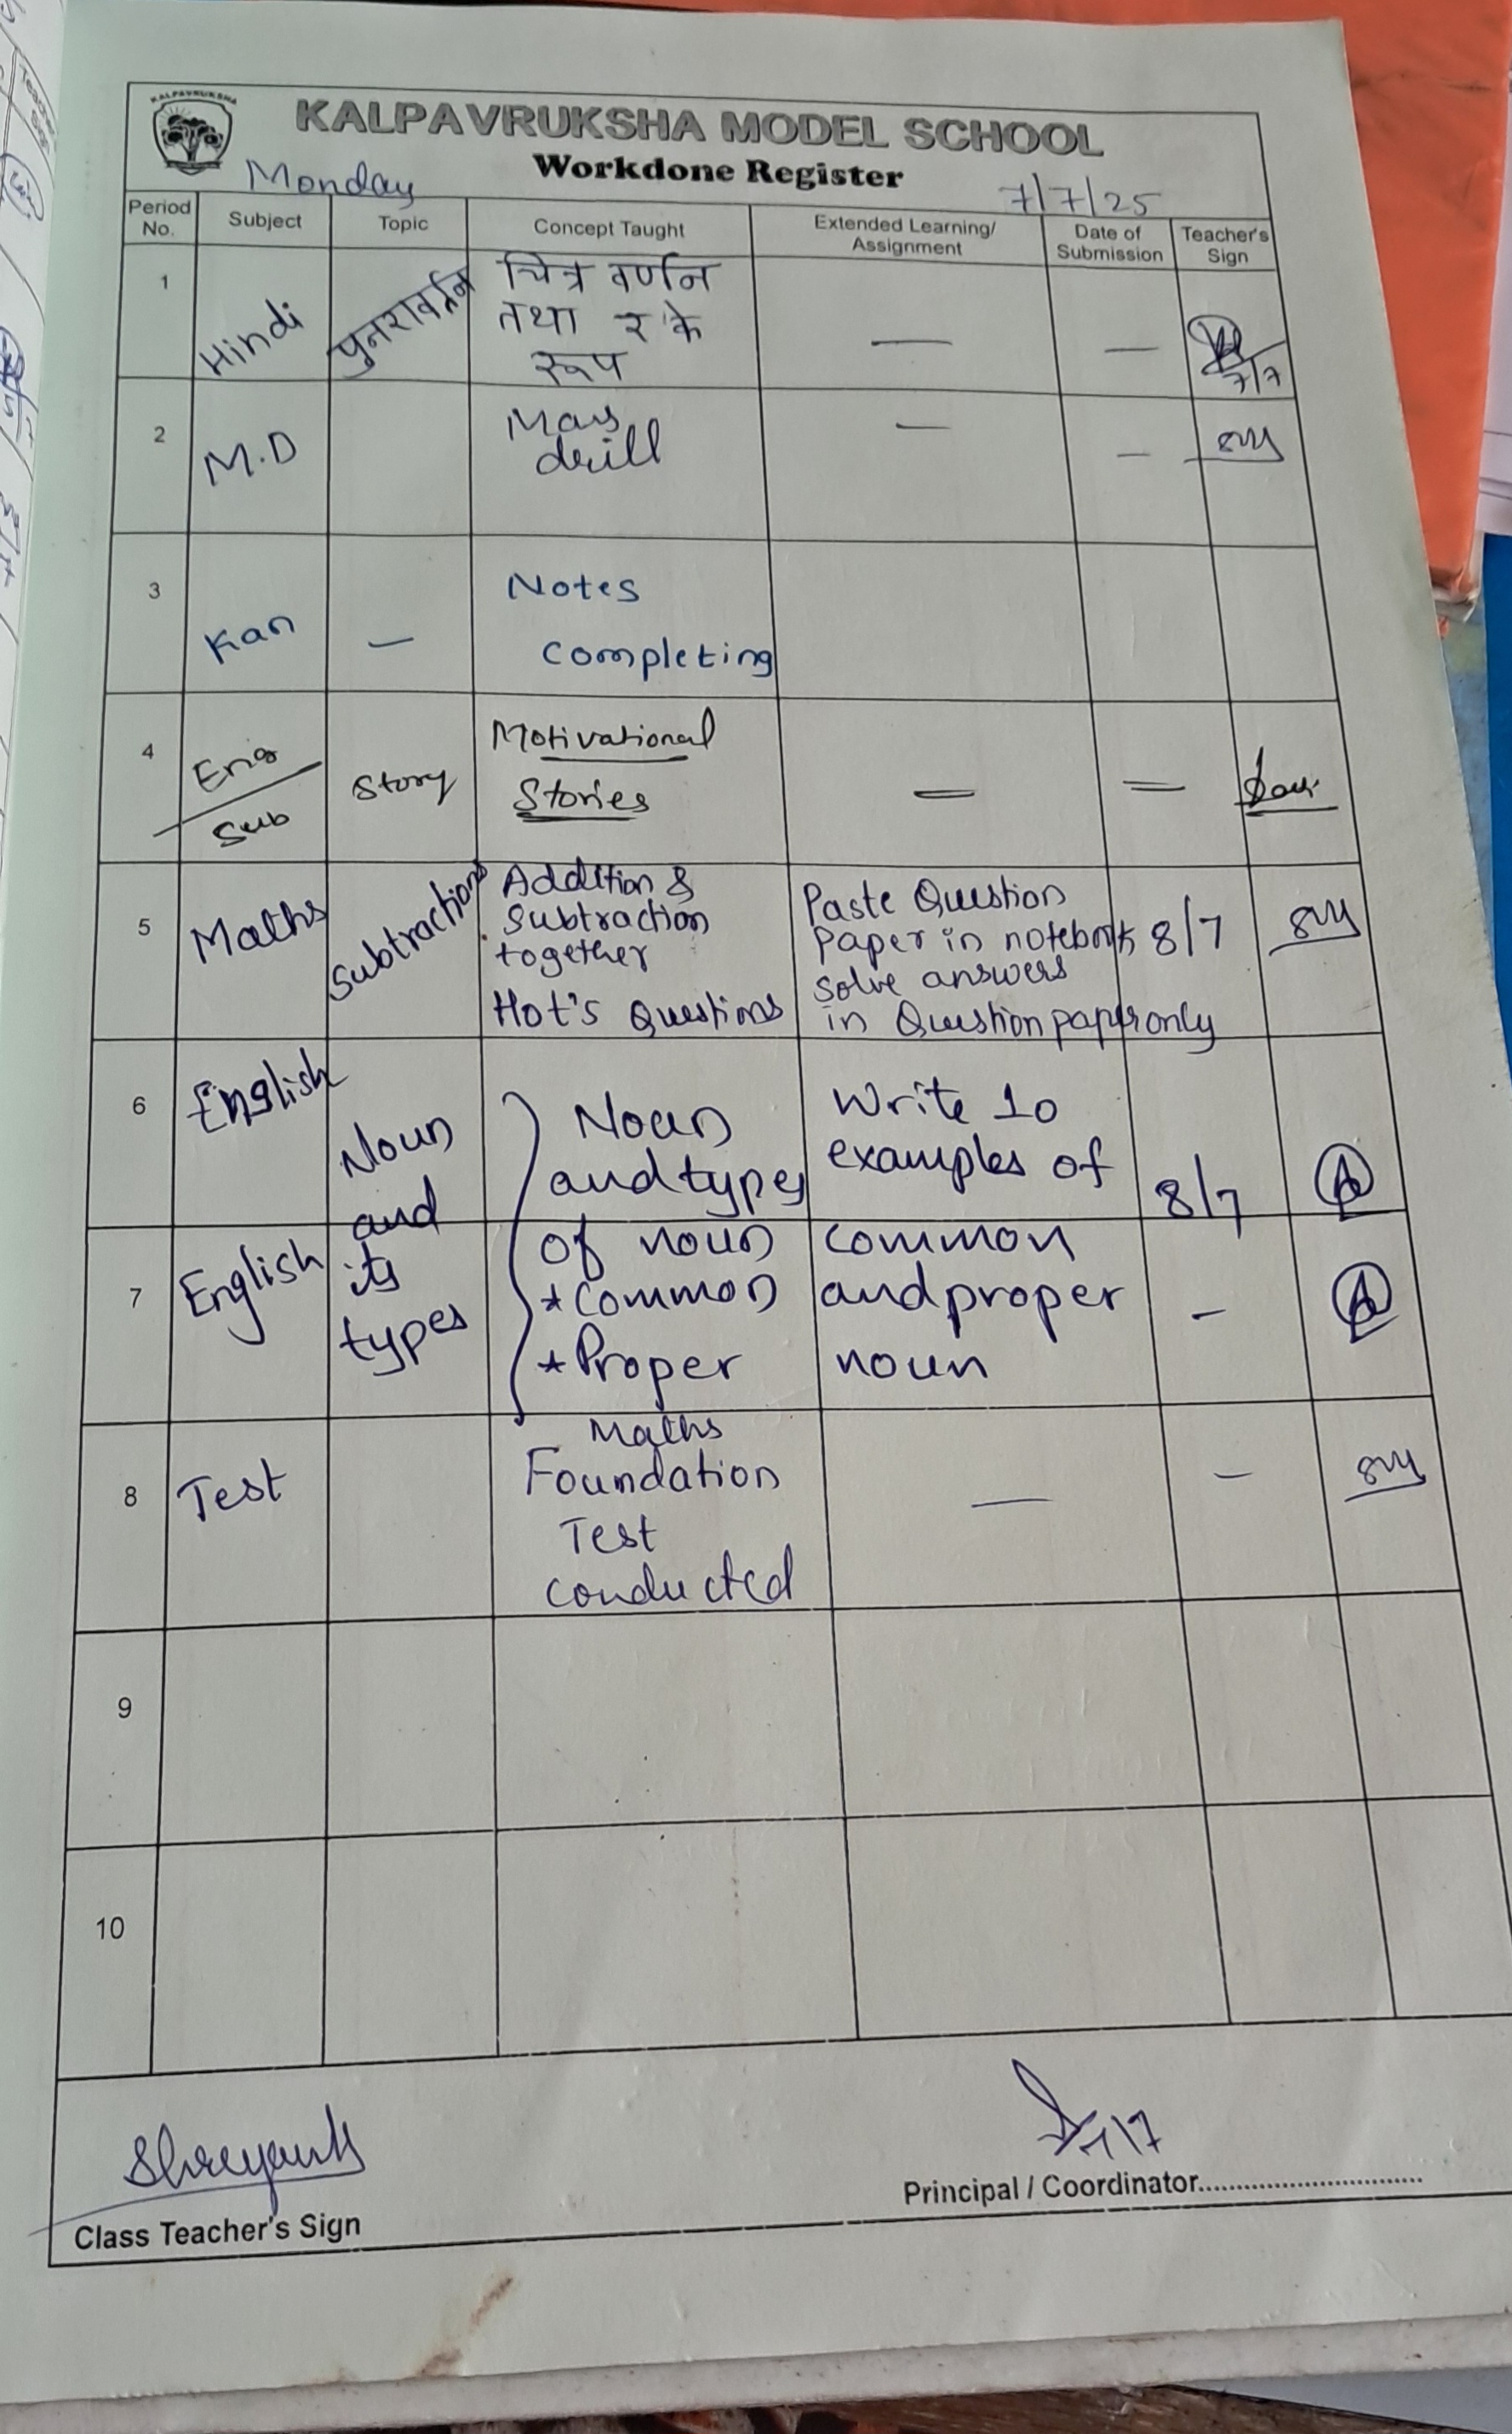 KALPAVRUKSHA
KALPAVRUKSHA MODEL SCHOOL
Workdone Register
Monday
7/7/25
Period No.
Subject
Topic
Concept Taught
Extended Learning/
Assignment
Date of
Submission
Teacher's
Sign
1
Hindi
पुनरावर्तन
चित्र वर्णन
तथा र के
रूप
—
—
7/7
2
M.D
Mass
drill
—
—
3
Kan
—
Notes
Completing
4
Eng
Sub
Story
Motivational
Stories
=
=
5
Maths
Subtractions
Addition &
Subtraction
together
Hot's Questions
Paste Question
paper in notebook
solve answers
in Question paper only
8/7
6
English
Noun
and
its
types
Noun
and types
of noun
* Common
* Proper
Write 10
examples of
common
and proper
noun
8/7
7
English
-
8
Test
Maths
Foundation
Test
conducted
—
—
9
10
Class Teacher's Sign
7/7
Principal / Coordinator..............................